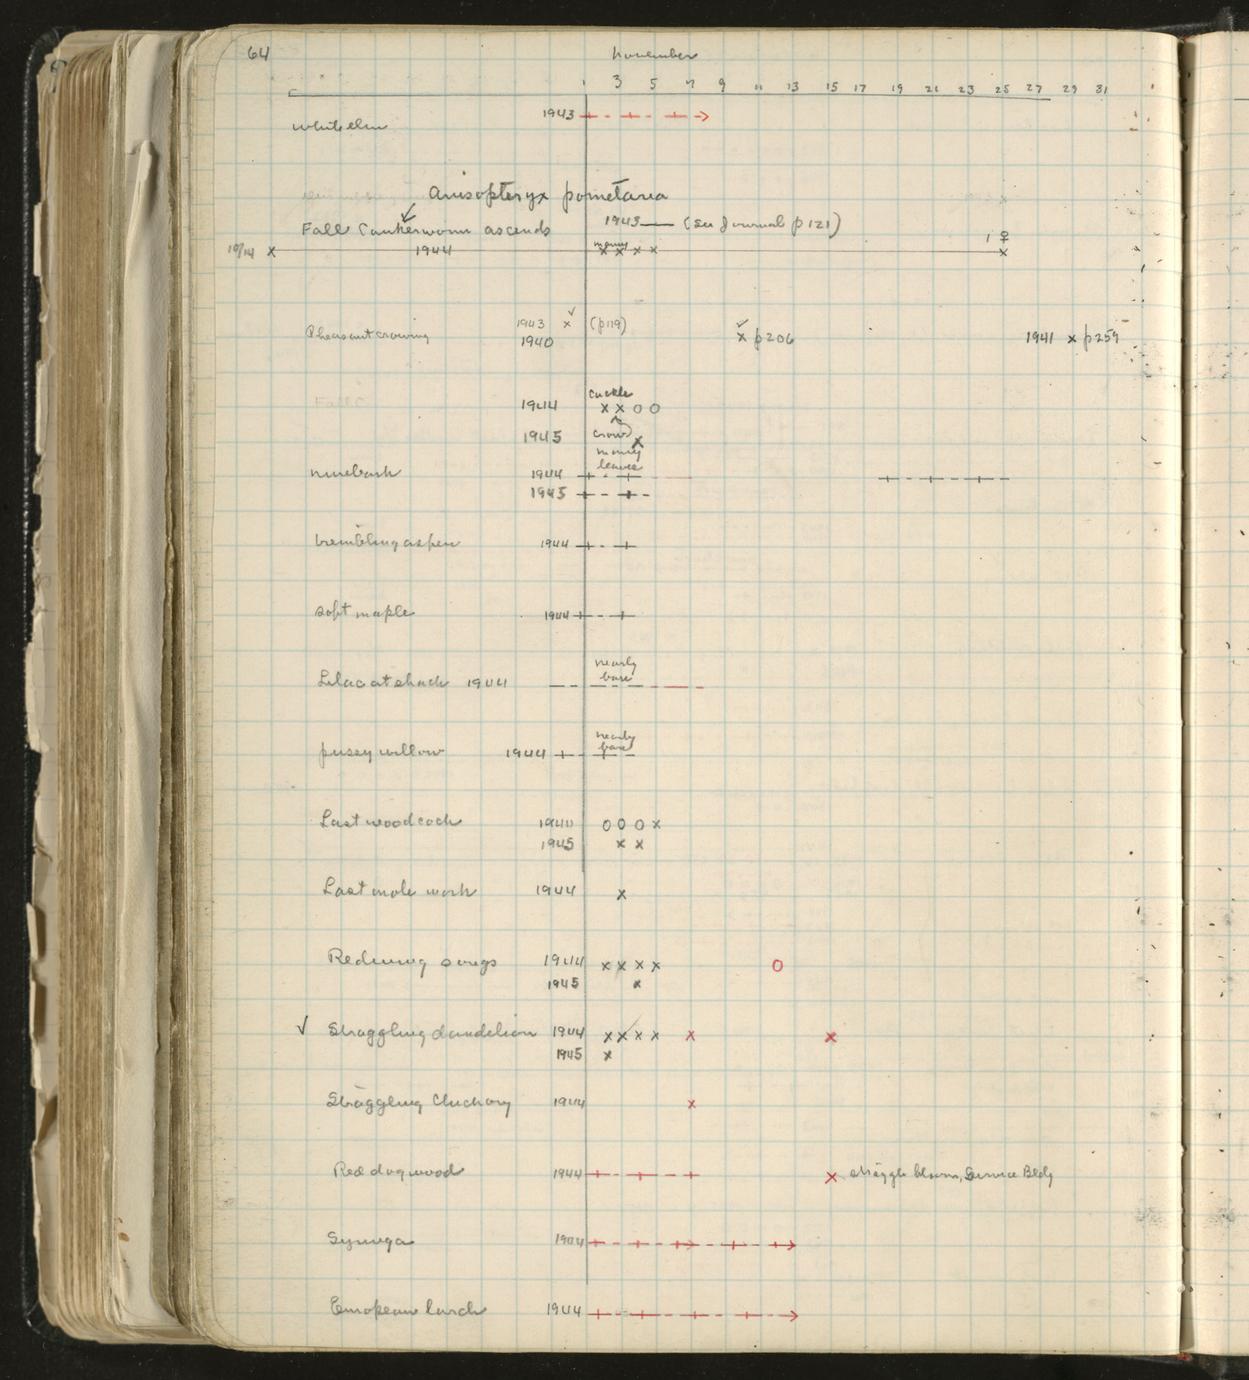 64 November
1 3 5 7 9 11 13 15 17 19 21 23 25 27 29 31
white elm 1943
Anisopteryx pometaria
Fall Cankerworm ascends 1943 (see Journal p 121)
10/14 x 1944 many x x x x 1 ♀ x
Pheasant crowing 1943 x ✓ (p119)
1940 ✓ x p 206 1941 x p 259
Fall C
cackle
1944 x x o o
1945 crow x
many
leaves
ninebark 1944
1945
trembling aspen 1944
soft maple 1944
nearly
bare
Lilac at shack 1944
nearly
bare
pussy willow 1944
Last woodcock 1944 o o o x
1945 x x
Last mole work 1944 x
Redwing sings 1944 x x x x o
1945 x
✓ Straggling dandelion 1944 x x x x x x
1945 x
Straggling Chickory 1944 x
Red dogwood 1944 x straggle bloom, Service Bldg
Syringa 1944
European larch 1944